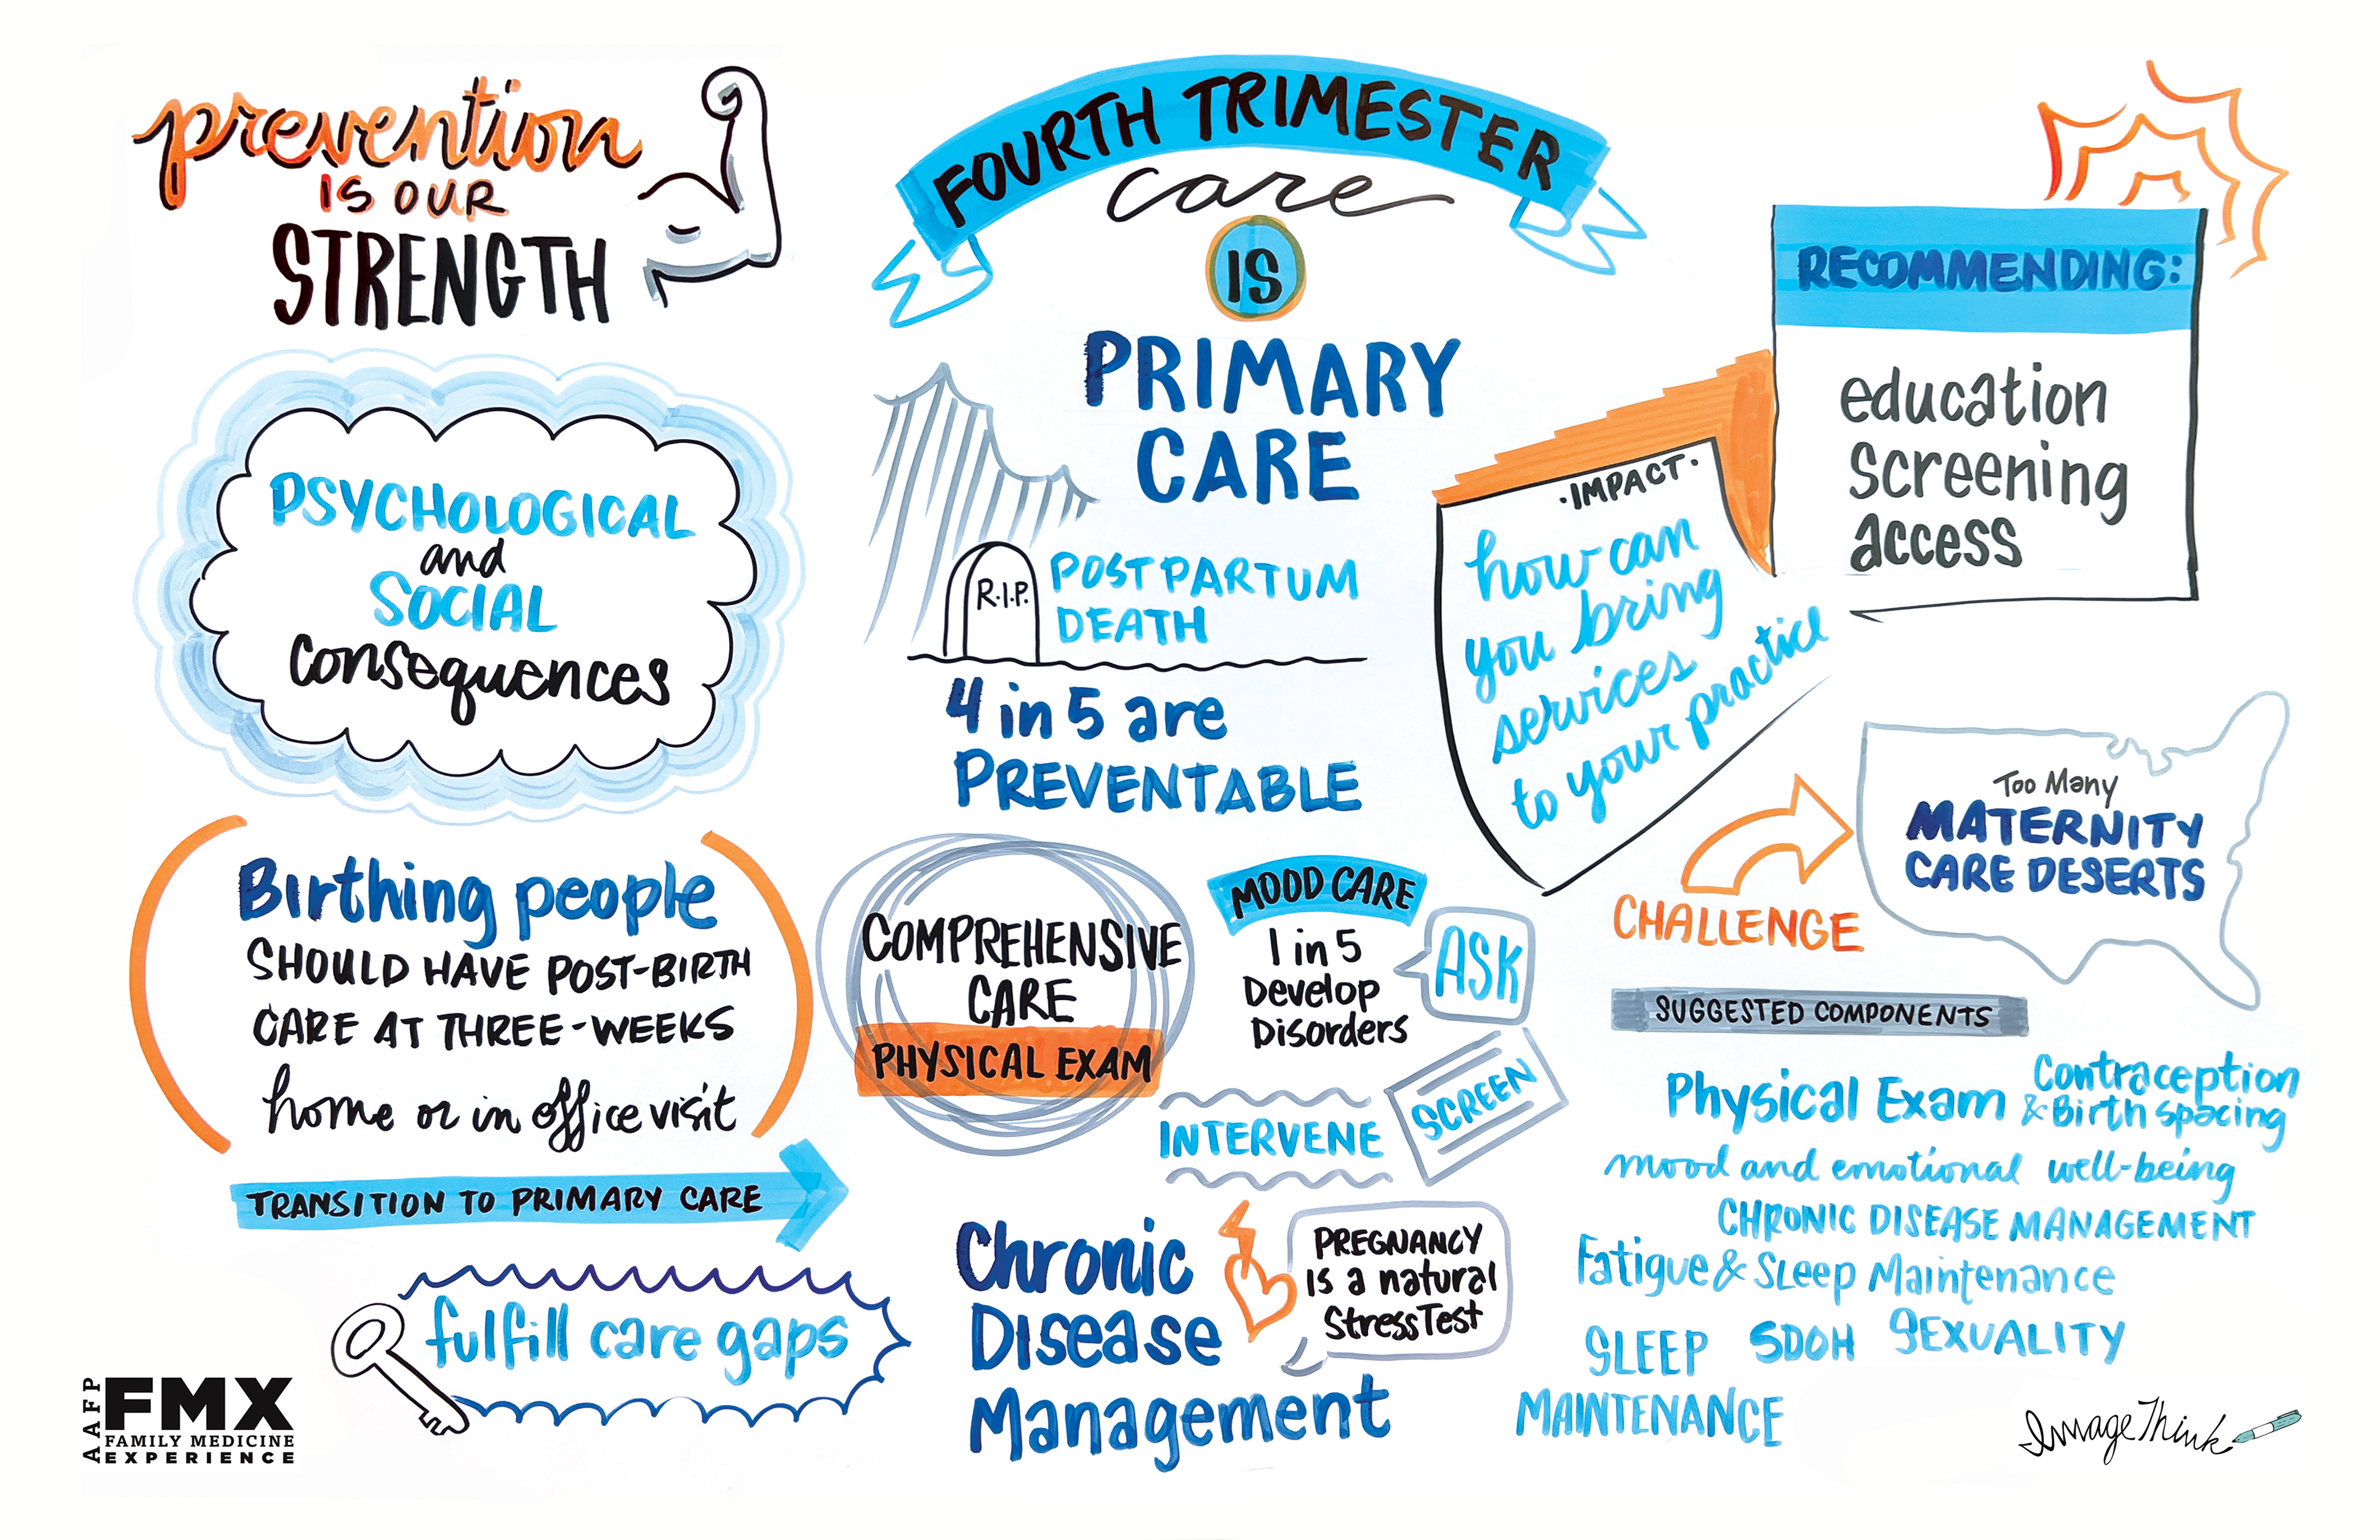 prevention
IS OUR
STRENGTH
PSYCHOLOGICAL
and
SOCIAL
Consequences
Birthing people
SHOULD HAVE POST-BIRTH
CARE AT THREE-WEEKS
home or in office visit
TRANSITION TO PRIMARY CARE
fulfill care gaps
AAFP
FMX
FAMILY MEDICINE
EXPERIENCE
FOURTH TRIMESTER
care
IS
PRIMARY
CARE
R.I.P.
POSTPARTUM
DEATH
4 in 5 are
PREVENTABLE
COMPREHENSIVE
CARE
PHYSICAL EXAM
MOOD CARE
1 in 5
Develop
Disorders
ASK
SCREEN
INTERVENE
Chronic
Disease
Management
PREGNANCY
is a natural
Stress Test
RECOMMENDING:
education
Screening
access
·IMPACT·
how can
you bring
services
to your practice
CHALLENGE
Too Many
MATERNITY
CARE DESERTS
SUGGESTED COMPONENTS
Physical Exam
Contraception
& Birth spacing
mood and emotional well-being
CHRONIC DISEASE MANAGEMENT
Fatigue & Sleep Maintenance
SLEEP
MAINTENANCE
SDOH
SEXUALITY
ImageThink